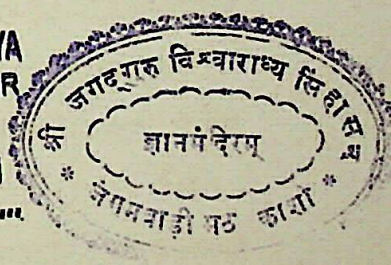 YA
R
श्री जगद्गुरु विश्वाराध्य सिंहासन
ज्ञानमंदिरम्
जंगमवाड़ी मठ काशी